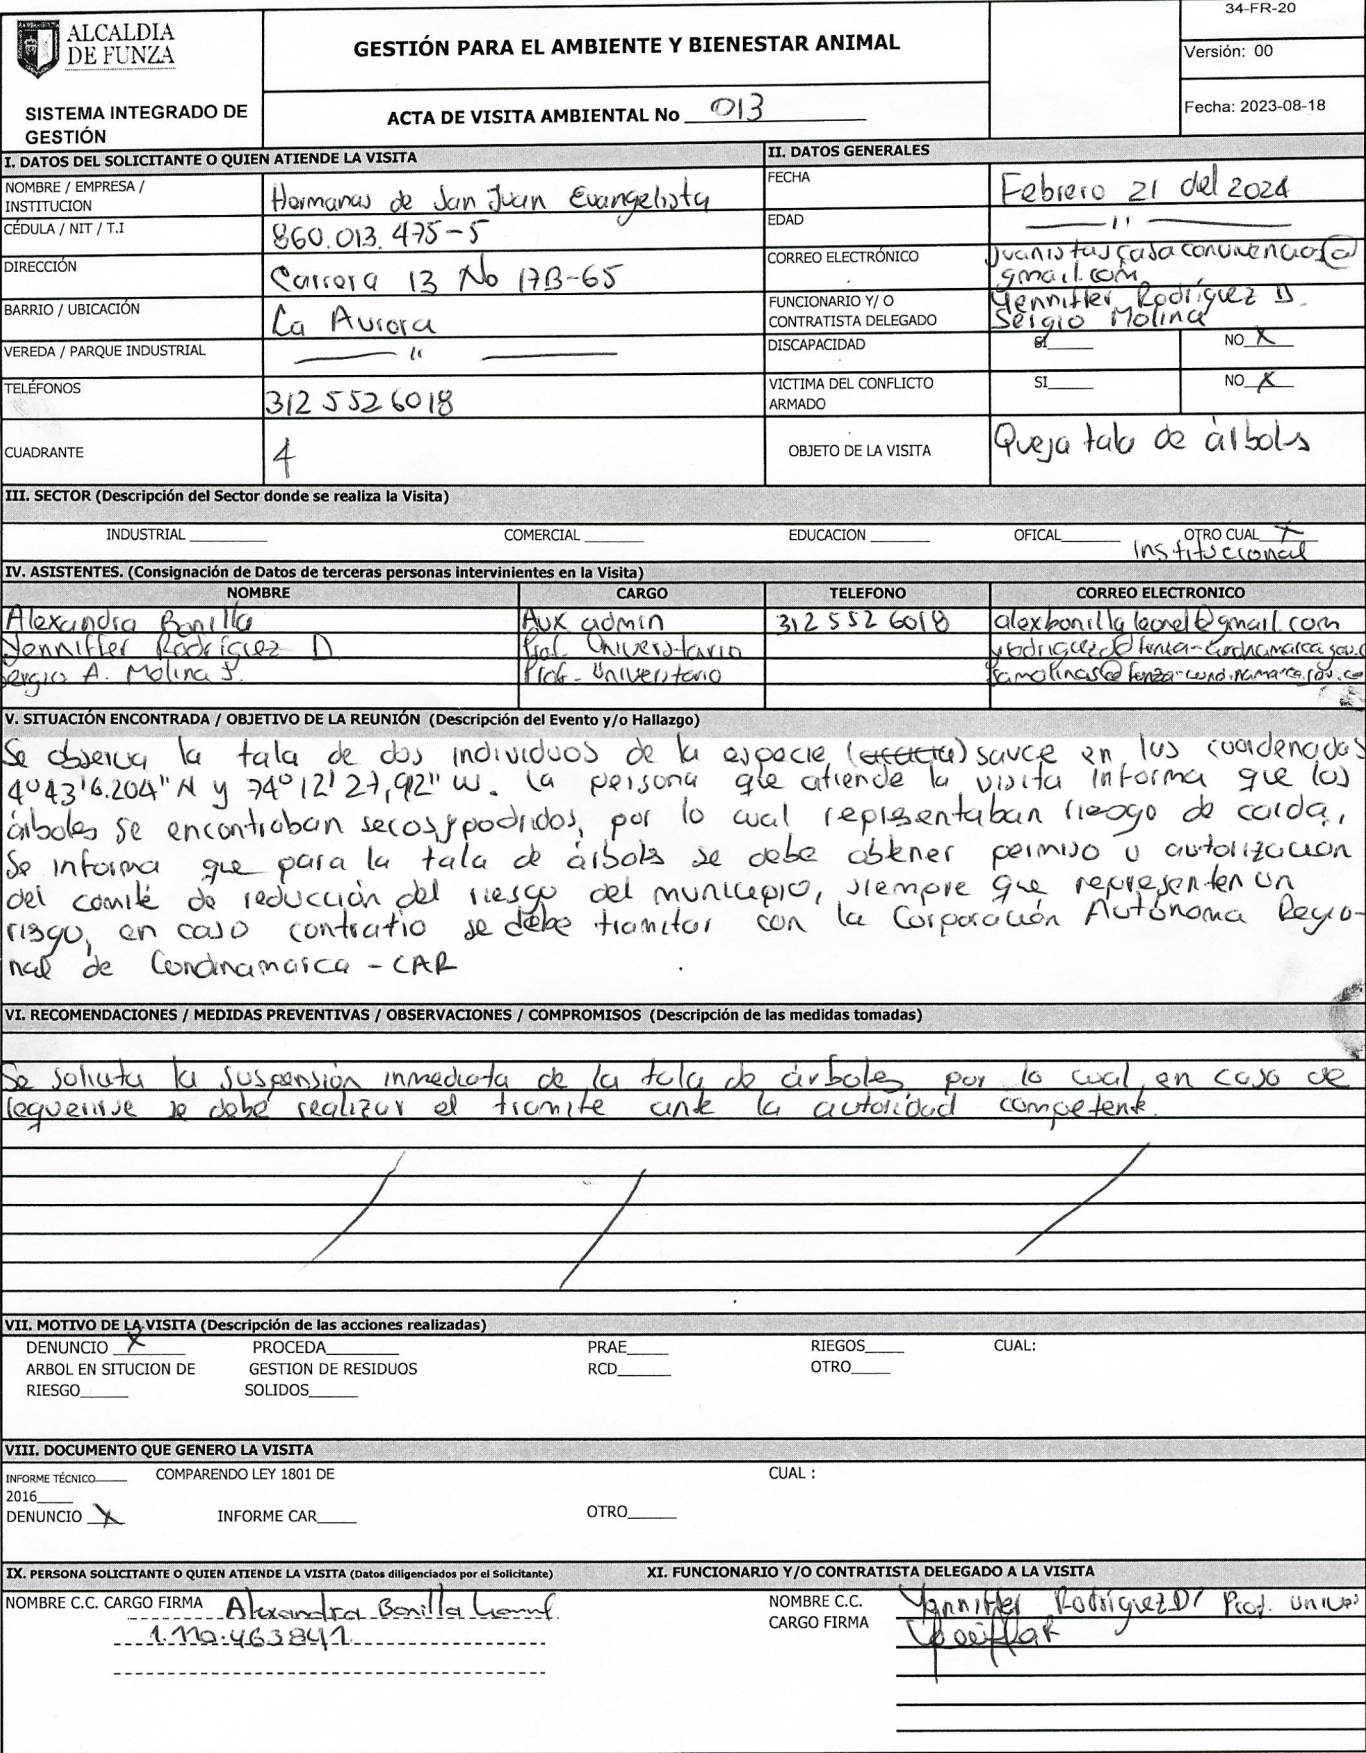 ALCALDIA
DE FUNZA
SISTEMA INTEGRADO DE
GESTIÓN
GESTIÓN PARA EL AMBIENTE Y BIENESTAR ANIMAL
ACTA DE VISITA AMBIENTAL No 013
34-FR-20
Versión: 00
Fecha: 2023-08-18
I. DATOS DEL SOLICITANTE O QUIEN ATIENDE LA VISITA
NOMBRE / EMPRESA /
INSTITUCION
Hermanas de San Juan Evangelista
CÉDULA / NIT / T.I
860.013.475-5
DIRECCIÓN
Carrera 13 No 17B-65
BARRIO / UBICACIÓN
La Aurora
VEREDA / PARQUE INDUSTRIAL
—— " ——
TELÉFONOS
312 552 6018
CUADRANTE
4
II. DATOS GENERALES
FECHA
Febrero 21 del 2024
EDAD
—— " ——
CORREO ELECTRÓNICO
juanistascasaconvivencias@
gmail.com
FUNCIONARIO Y/ O
CONTRATISTA DELEGADO
Yenniffer Rodríguez D.
Sergio Molina
DISCAPACIDAD
SI____ NO X
VICTIMA DEL CONFLICTO
ARMADO
SI____ NO X
OBJETO DE LA VISITA
Queja tala de árboles
III. SECTOR (Descripción del Sector donde se realiza la Visita)
INDUSTRIAL ____ COMERCIAL ____ EDUCACION ____ OFICAL____ OTRO CUAL X
Institucional
IV. ASISTENTES. (Consignación de Datos de terceras personas intervinientes en la Visita)
NOMBRE CARGO TELEFONO CORREO ELECTRONICO
Alexandra Bonilla Aux admin 312 552 6018 alexbonillaleonel@gmail.com
Yenniffer Rodríguez D Prof. Universitario
Sergio A. Molina S. Prof. Universitario
V. SITUACIÓN ENCONTRADA / OBJETIVO DE LA REUNIÓN (Descripción del Evento y/o Hallazgo)
Se observa la tala de dos individuos de la especie (acacia) sauce en las coordenadas
4°43'6.204" N y 74°12'27,92" W. La persona que atiende la visita informa que los
árboles se encontraban secos y podridos, por lo cual representaban riesgo de caída,
Se informa que para la tala de árboles se debe obtener permiso o autorización
del comité de reducción del riesgo del municipio, siempre que representen un
riesgo, en caso contratio se debe tramitar con la Corporación Autónoma Regio-
nal de Cundinamarca - CAR
VI. RECOMENDACIONES / MEDIDAS PREVENTIVAS / OBSERVACIONES / COMPROMISOS (Descripción de las medidas tomadas)
Se solicita la suspensión inmediata de la tala de árboles, por lo cual, en caso de
requerirse se debe realizar el tramite ante la autoridad competente.
VII. MOTIVO DE LA VISITA (Descripción de las acciones realizadas)
DENUNCIO X PROCEDA____ PRAE____ RIEGOS____ CUAL:
ARBOL EN SITUCION DE GESTION DE RESIDUOS RCD____ OTRO____
RIESGO____ SOLIDOS____
VIII. DOCUMENTO QUE GENERO LA VISITA
INFORME TÉCNICO____ COMPARENDO LEY 1801 DE CUAL :
2016____
DENUNCIO X INFORME CAR____ OTRO____
IX. PERSONA SOLICITANTE O QUIEN ATIENDE LA VISITA (Datos diligenciados por el Solicitante)
NOMBRE C.C. CARGO FIRMA Alexandra Bonilla
1.110.463841
XI. FUNCIONARIO Y/O CONTRATISTA DELEGADO A LA VISITA
NOMBRE C.C.
CARGO FIRMA
Yenniffer Rodríguez D/ Prof. Univer